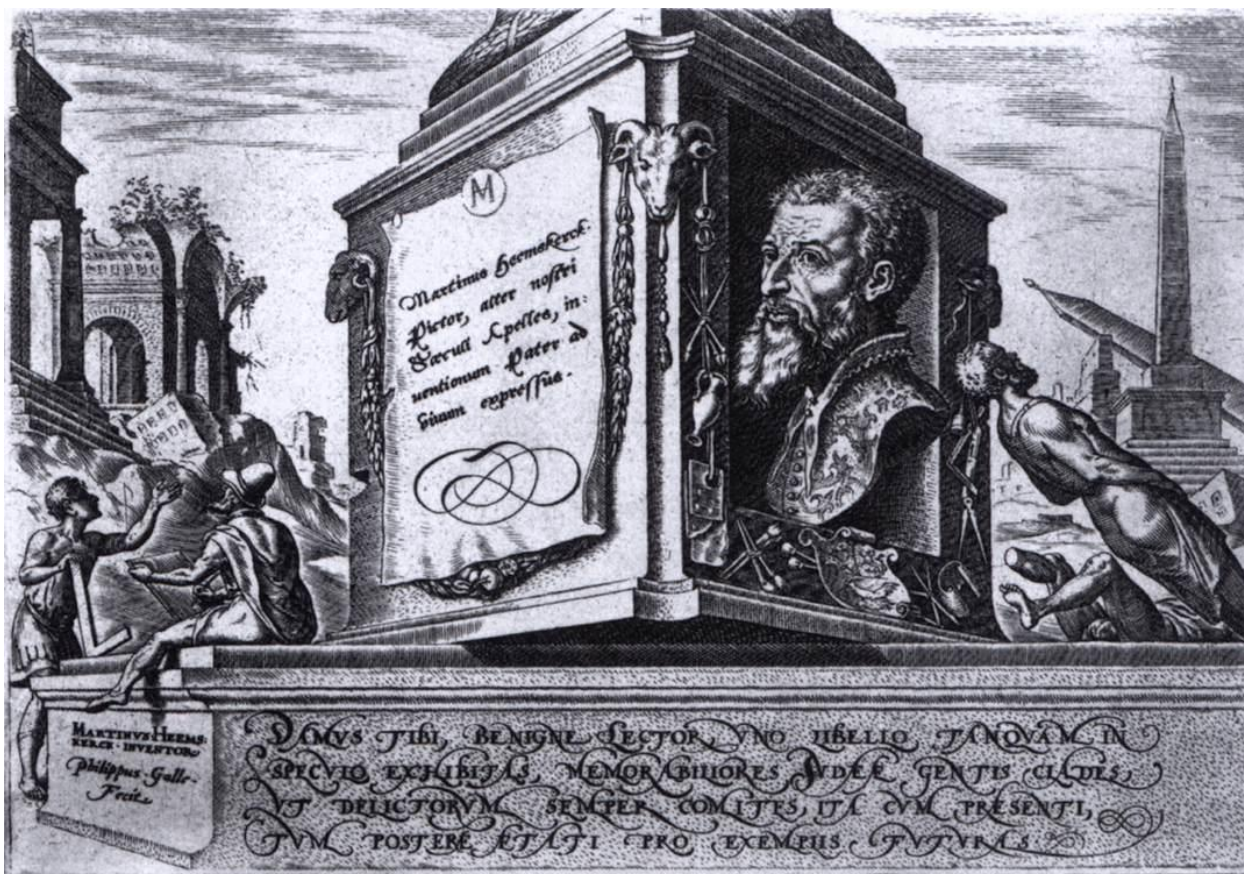 M
Martinus Heemskerck.
Pictor, alter nostri
Sæculi Apelles, in:
uentionum Pater ad
uiuum expressus.
MARTINVS HEEMS:
KERCK INVENTOR
Philippus Galle.
Fecit.
DAMVS TIBI, BENIGNE LECTOR, VNO LIBELLO TANQVAM IN
SPECVLO EXHIBITAS, MEMORABILIORES IVDEÆ GENTIS CLADES,
VT DELICTORVM SEMPER COMITES, ITA CVM PRESENTI,
TVM POSTERE ÆTATI PRO EXEMPLIS FVTVRAS.